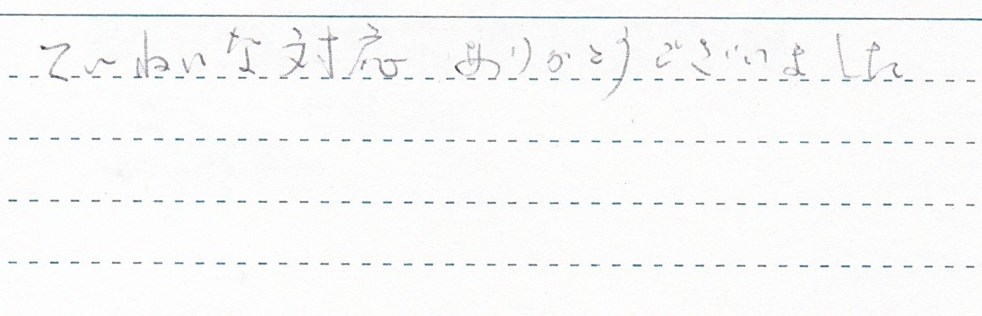 ていねいな対応 ありがとうございました